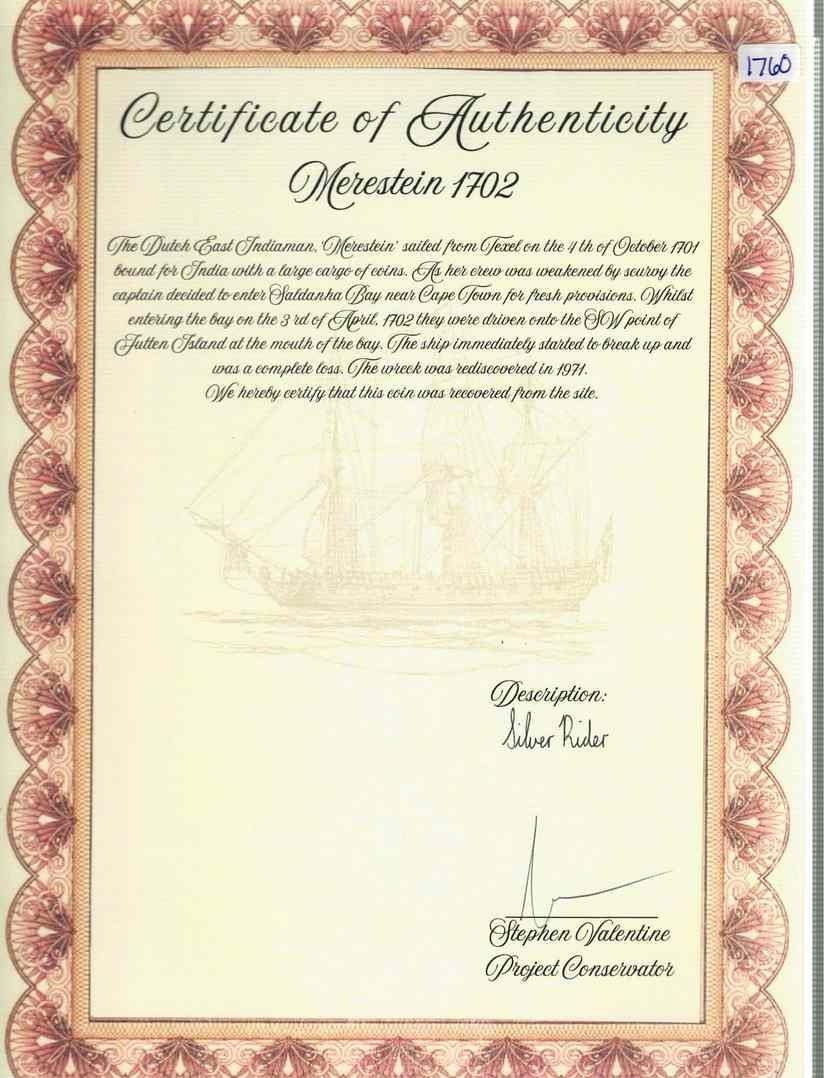 1760
Certificate of Authenticity
Merestein 1702
The Dutch East Indiaman, 'Merestein' sailed from Texel on the 4 th of October 1701
bound for India with a large cargo of coins. As her crew was weakened by scurvy the
captain decided to enter Saldanha Bay near Cape Town for fresh provisions. Whilst
entering the bay on the 3 rd of April, 1702 they were driven onto the SW point of
Jutten Island at the mouth of the bay. The ship immediately started to break up and
was a complete loss. The wreck was rediscovered in 1971.
We hereby certify that this coin was recovered from the site.
Description:
Silver Rider
Stephen Valentine
Project Conservator